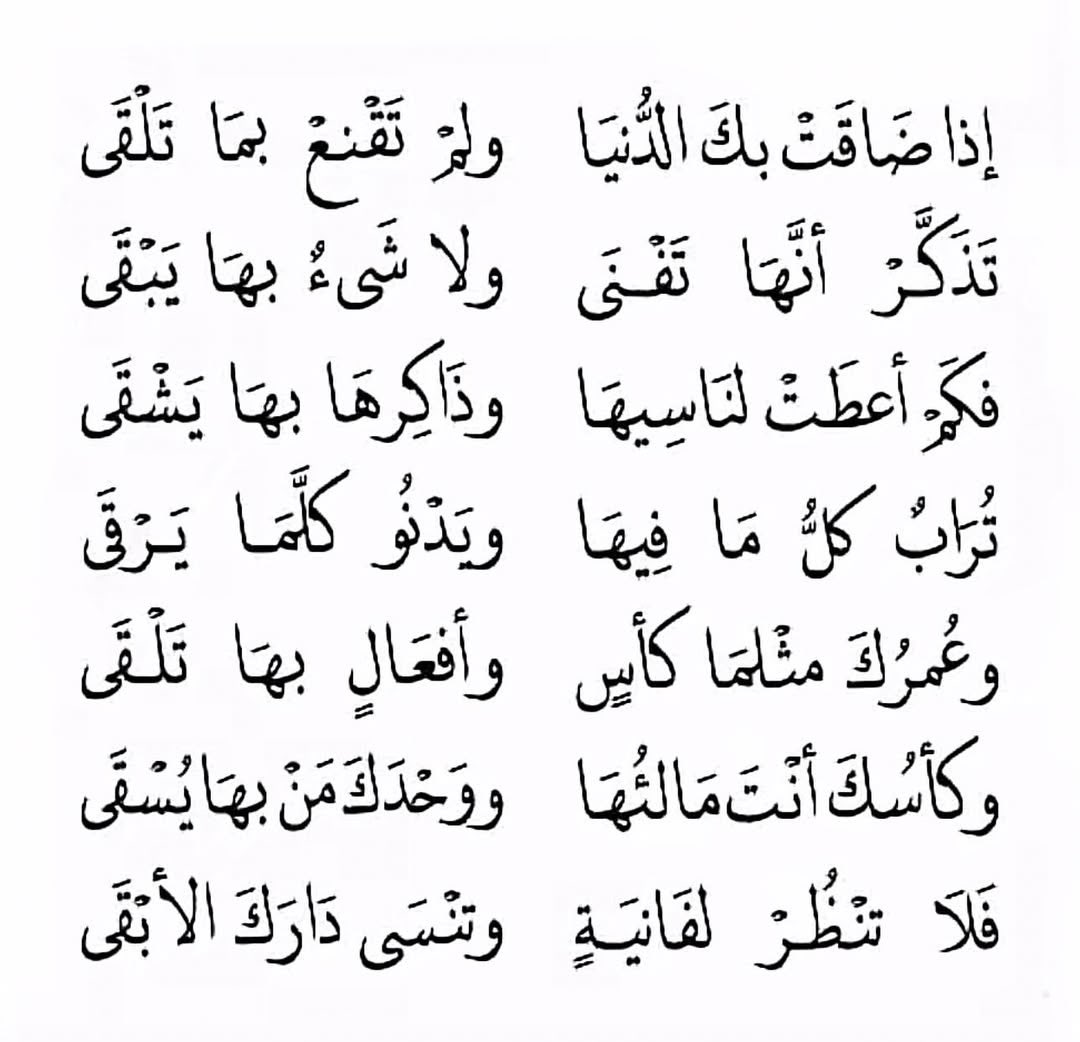 إذا ضَاقَتْ بكَ الدُّنيَا ولمْ تَقْنعْ بمَا تَلْقَى
تَذَكَّرْ أنَّهَا تَفْنَى ولا شَىءٌ بهَا يَبْقَى
فكَمْ أعطَتْ لنَاسِيهَا وذَاكِرهَا بهَا يَشْقَى
تُرَابٌ كلُّ مَا فِيهَا ويَدْنُو كلَّمَا يَرْقَى
وعُمرُكَ مثْلمَا كأسٍ وأفعَالٍ بهَا تَلْقَى
وكأسُكَ أنْتَ مَالئُهَا ووَحْدَكَ مَنْ بهَا يُسْقَى
فَلَا تنْظُرْ لفَانيَةٍ وتنْسَى دَارَكَ الأبْقَى